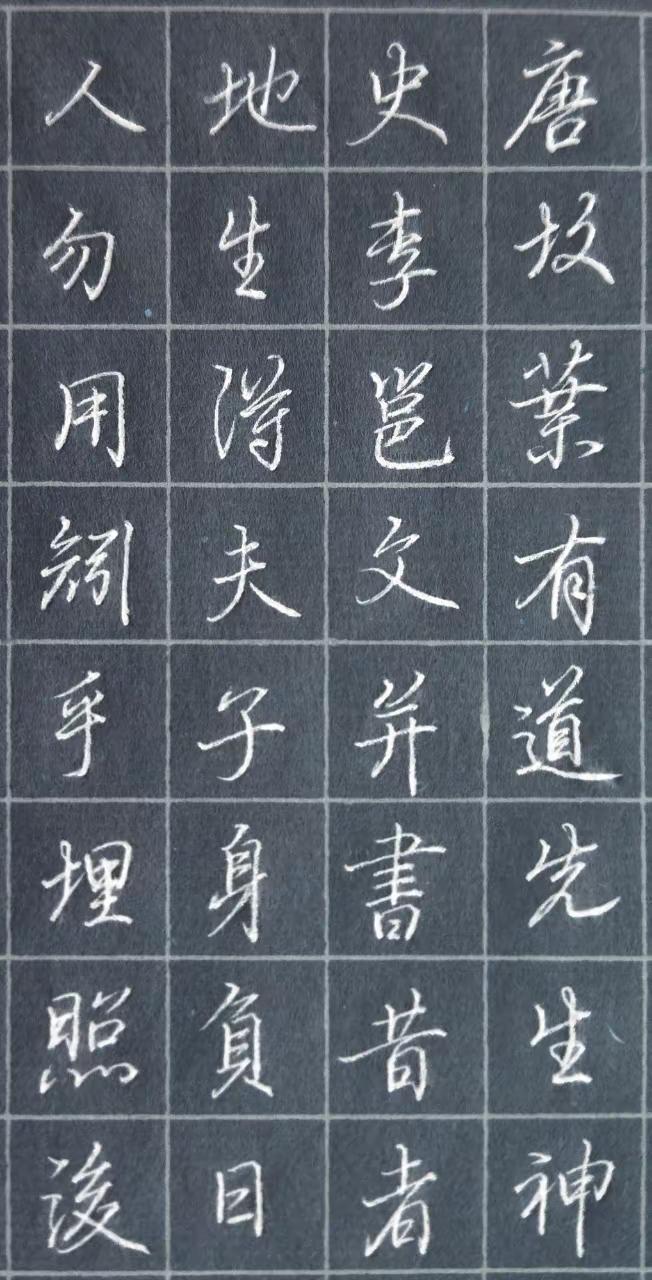 唐故葉有道先生神
史李邕文并書昔者
地生得夫子身負日
人勿用矧乎埋照後